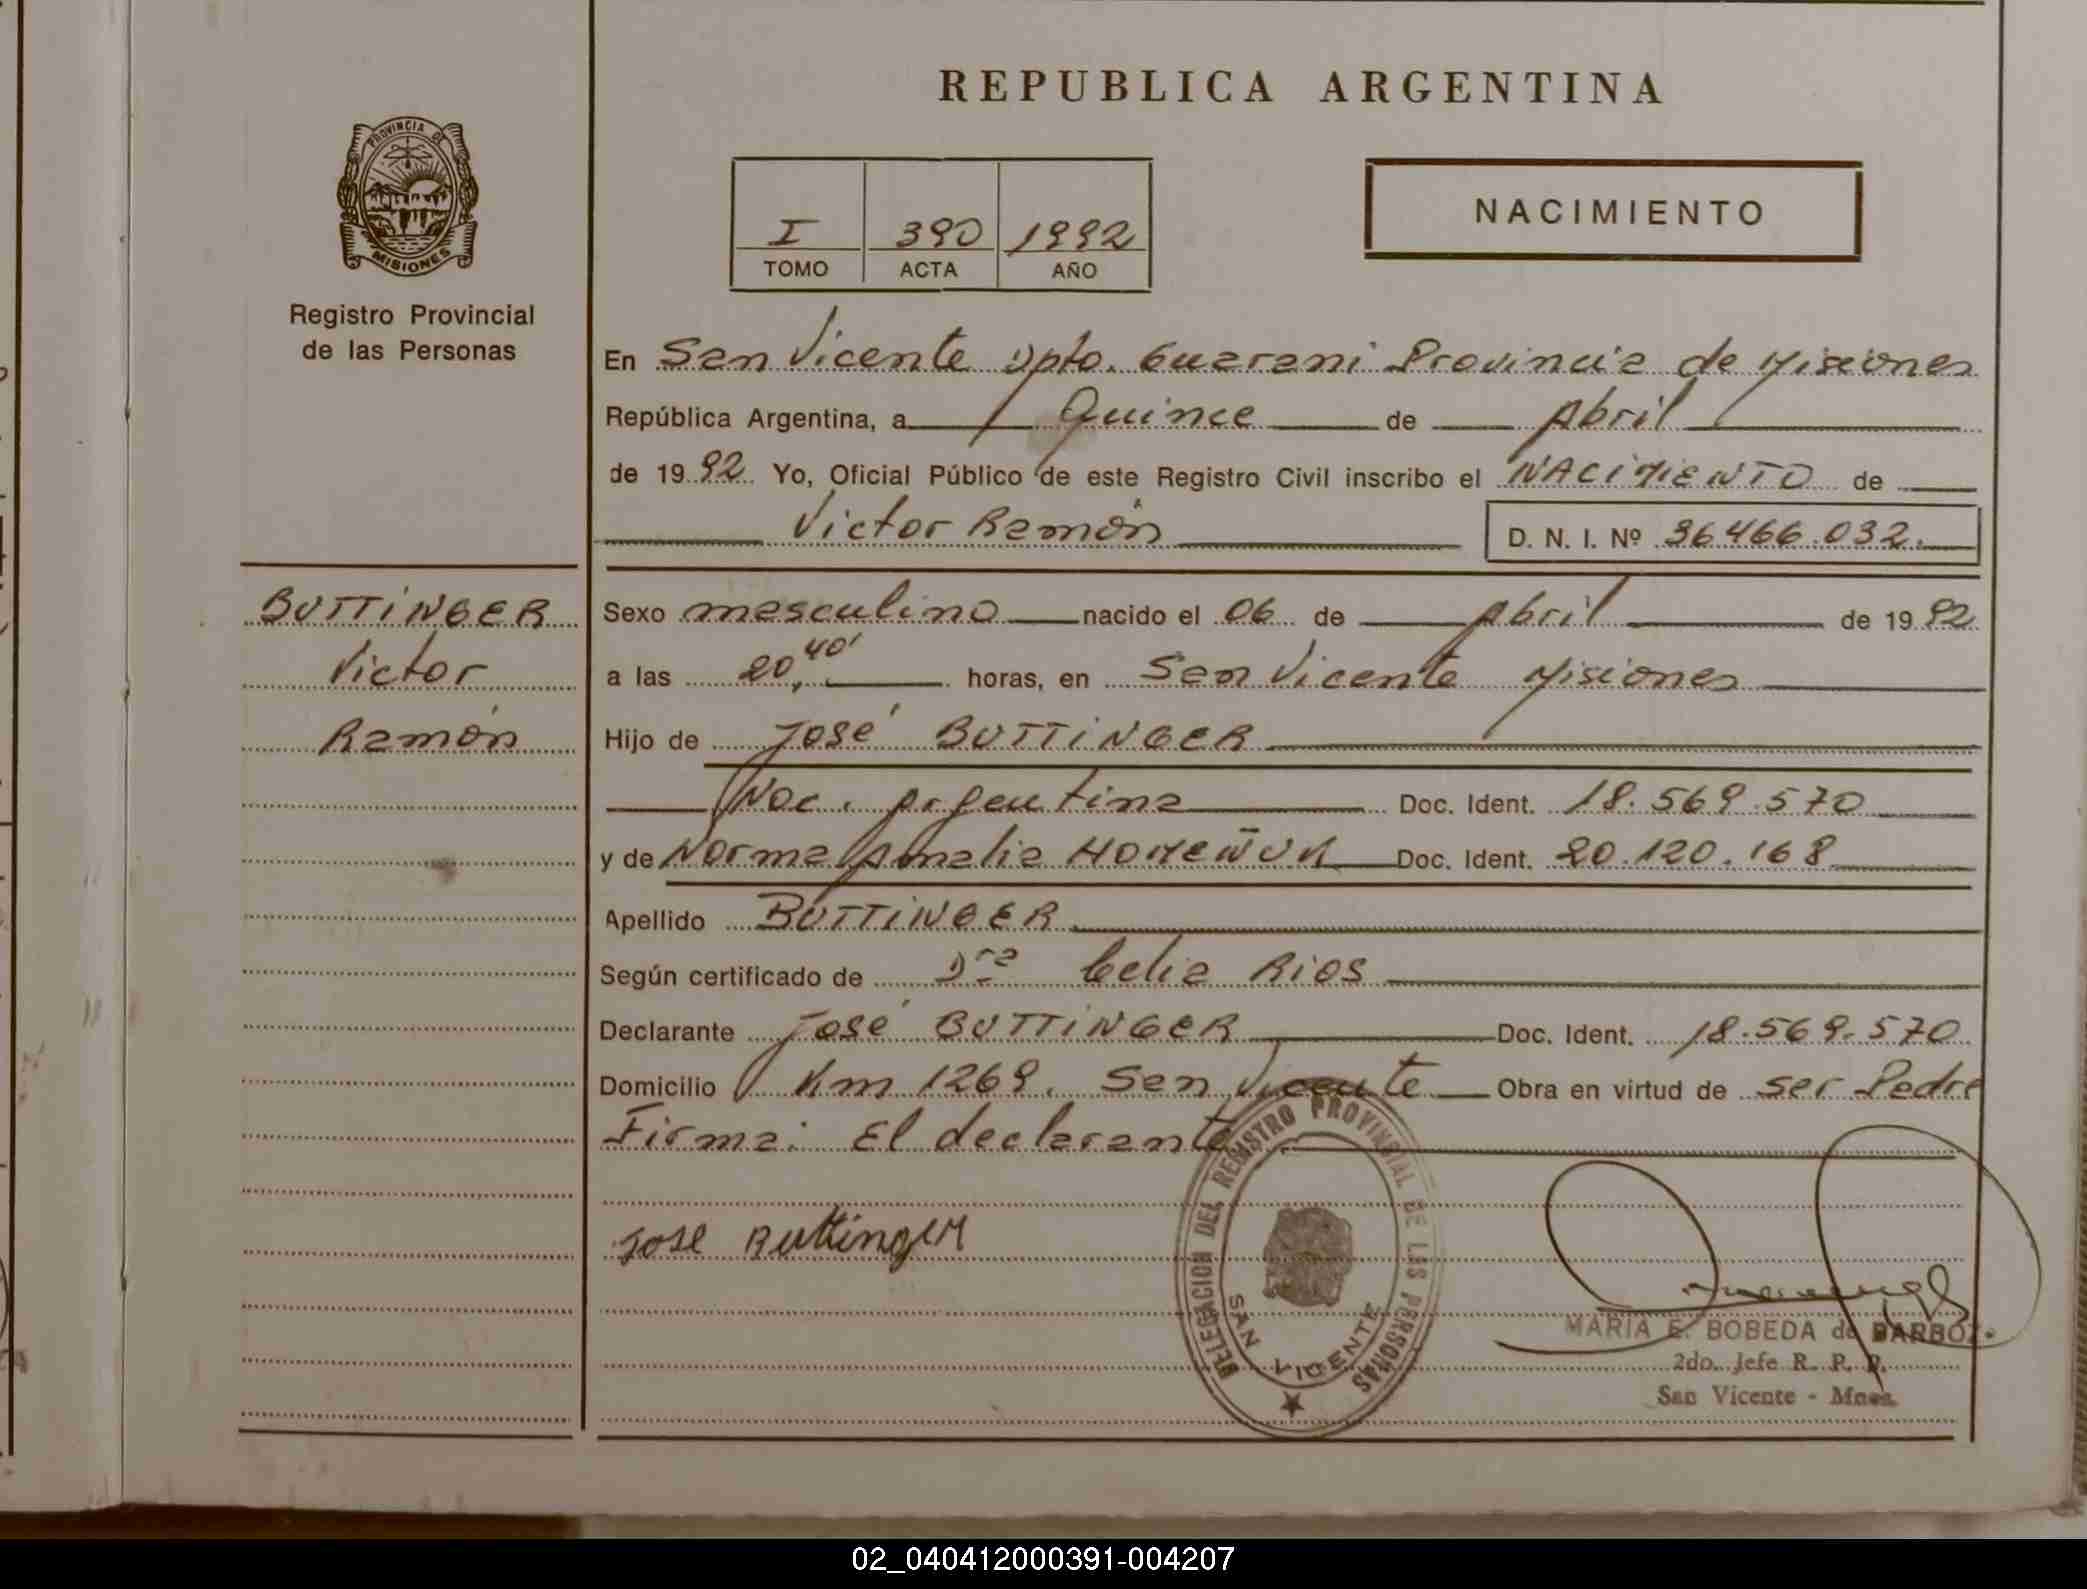 REPUBLICA ARGENTINA
PROVINCIA DE
MISIONES
Registro Provincial
de las Personas
I 390 1992
TOMO ACTA AÑO
NACIMIENTO
En San Vicente Dpto. Guarani Provincia de Misiones
República Argentina, a Quince de Abril
de 1992 Yo, Oficial Público de este Registro Civil inscribo el NACIMIENTO de
Victor Ramón D. N. I. Nº 36.466.032.
BUTTINGER
Victor
Ramón
Sexo masculino nacido el 06 de Abril de 1992
a las 20,40' horas, en San Vicente Misiones
Hijo de José BUTTINGER
Nac. Argentina Doc. Ident. 18.569.570
y de Norma Amalia Doc. Ident. 20.120.168
Apellido BUTTINGER
Según certificado de Dra Celia Rios
Declarante José BUTTINGER Doc. Ident. 18.569.570
Domicilio Km 1269. San Vicente Obra en virtud de ser Padre
Firma: El declarante
Jose Buttinger
DELEGACION DEL REGISTRO PROVINCIAL DE LAS PERSONAS
SAN VICENTE
MARIA E. BOBEDA de BARBOZA
2do. Jefe R. P. P.
San Vicente - Mnes.
02_040412000391-004207